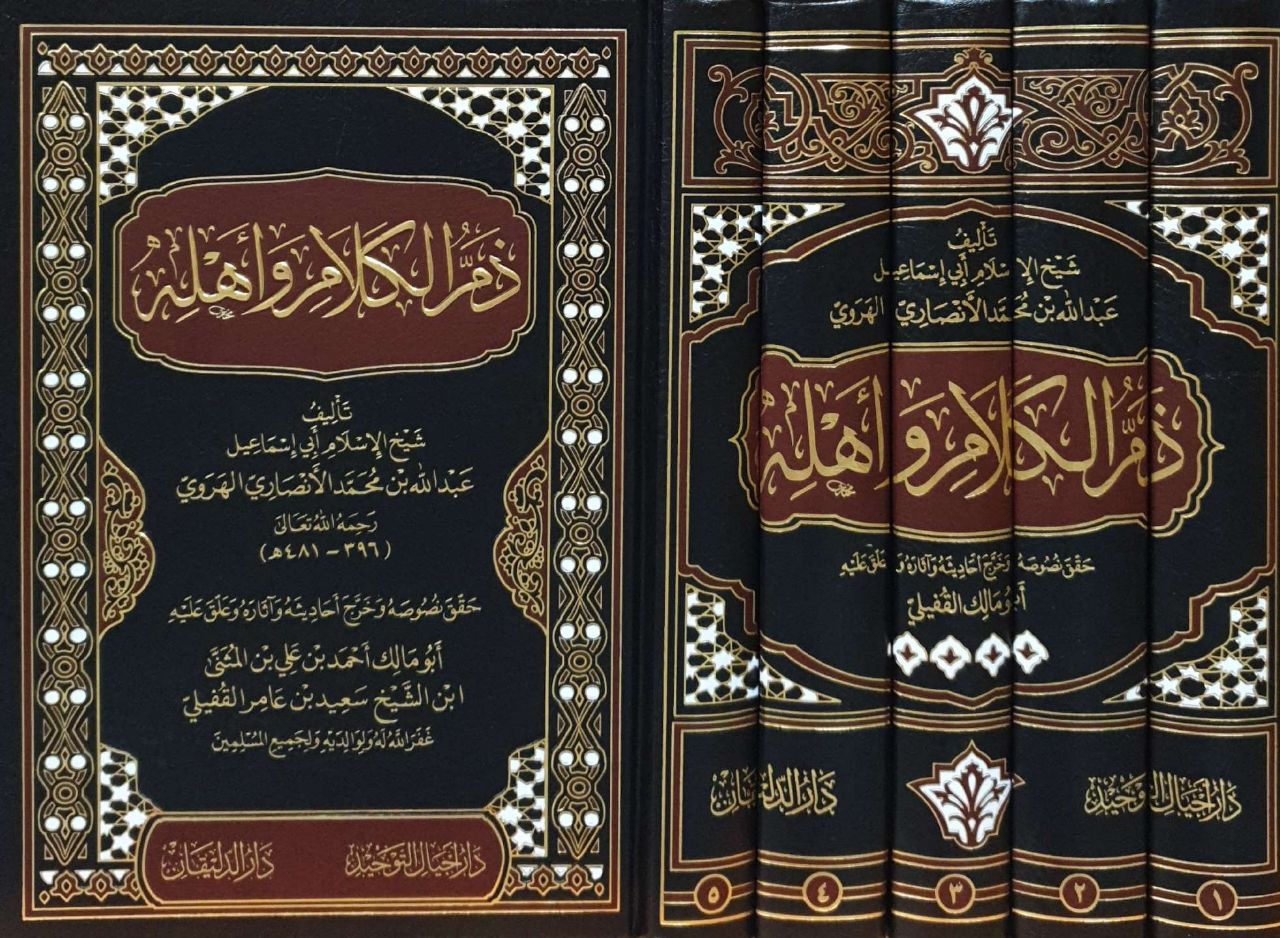 ذَمُّ الكَلَامِ وَأَهْلِهِ
تَأْلِيفُ
شَيْخ الإِسْلَام أَبِي إِسْمَاعِيل
عَبْد الله بْن مُحَمَّد الأَنْصَارِيّ الهَرَوِيّ
رَحِمَهُ اللهُ تَعَالَى
(٣٩٦ - ٤٨١هـ)
حَقَّقَ نُصُوصَهُ وَخَرَّجَ أَحَادِيثَهُ وَآثَارَهُ وَعَلَّقَ عَلَيْهِ
أَبُو مَالِك أَحْمَد بْن عَلِي بْن المُثَنَّى
ابْن الشَّيْخ سَعِيد بْن عَامِر القُفَيلِيّ
غَفَرَ اللهُ لَهُ وَلِوَالِدَيْهِ وَلِجَمِيعِ المُسْلِمِينَ
دَارُ أَجْيَالِ التَّوْحِيدِ
دَارُ الدِّلِيقَانِ
تَأْلِيفُ
شَيْخ الإِسْلَام أَبِي إِسْمَاعِيل
عَبْد الله بْن مُحَمَّد الأَنْصَارِيّ الهَرَوِيّ
ذَمُّ الكَلَامِ وَأَهْلِهِ
حَقَّقَ نُصُوصَهُ وَخَرَّجَ أَحَادِيثَهُ وَآثَارَهُ وَعَلَّقَ عَلَيْهِ
أَبُو مَالِك القُفَيلِيّ
دَارُ أَجْيَالِ التَّوْحِيدِ
دَارُ الدِّلِيقَانِ
١ ٢ ٣ ٤ ٥